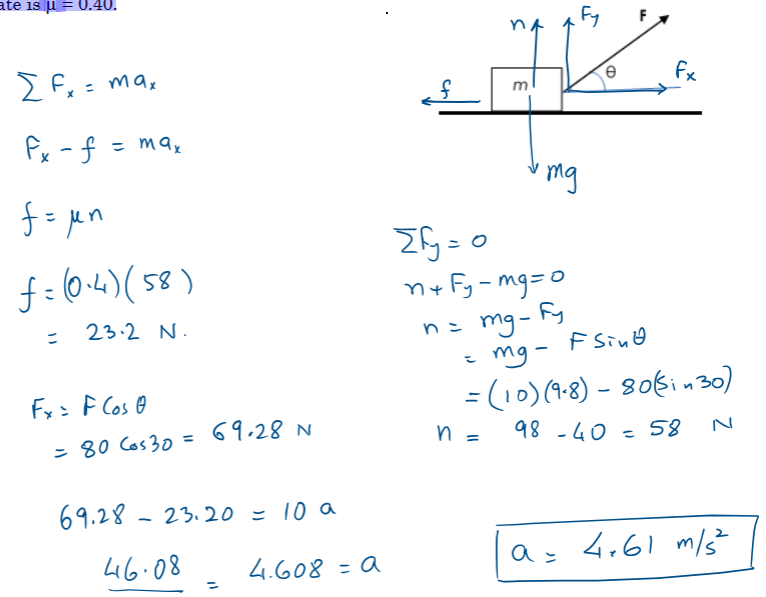 ate is μ = 0.40.
n Fy F
θ Fx
f m
mg
∑ Fx = max
Fx - f = max
f = μn
f = (0.4)(58)
= 23.2 N.
Fx = F Cos θ
= 80 Cos30 = 69.28 N
69.28 - 23.20 = 10 a
46.08 = 4.608 = a
∑Fy = 0
n + Fy - mg = 0
n = mg - Fy
= mg - F Sinθ
= (10)(9.8) - 80(Sin30)
n = 98 - 40 = 58 N
a = 4.61 m/s²